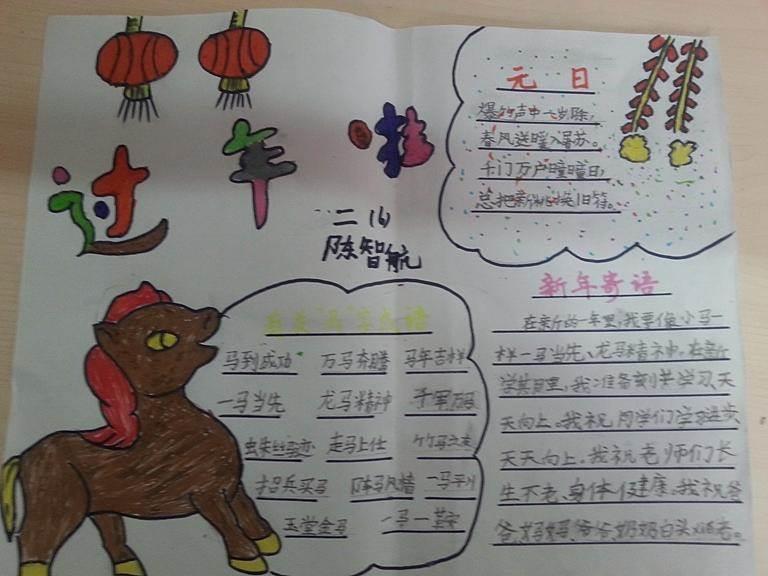 过年啦
二(6)
陈智航
元日
爆竹声中一岁除,
春风送暖入屠苏。
千门万户曈曈日,
总把新桃换旧符。
有关“马”字成语
马到成功 万马奔腾 马年吉祥
一马当先 龙马精神 千军万马
蛛丝马迹 走马上任 竹马之友
招兵买马 阵马风樯 一马平川
玉堂金马 一马一鞍
新年寄语
在新的一年里,我要像小马一
样一马当先、龙马精神。在新
学期里,我准备刻苦学习,天
天向上。我祝同学们学习进步
天天向上。我祝老师们长
生不老、身体健康。我祝爸
爸、妈妈、爷爷、奶奶白头偕老。